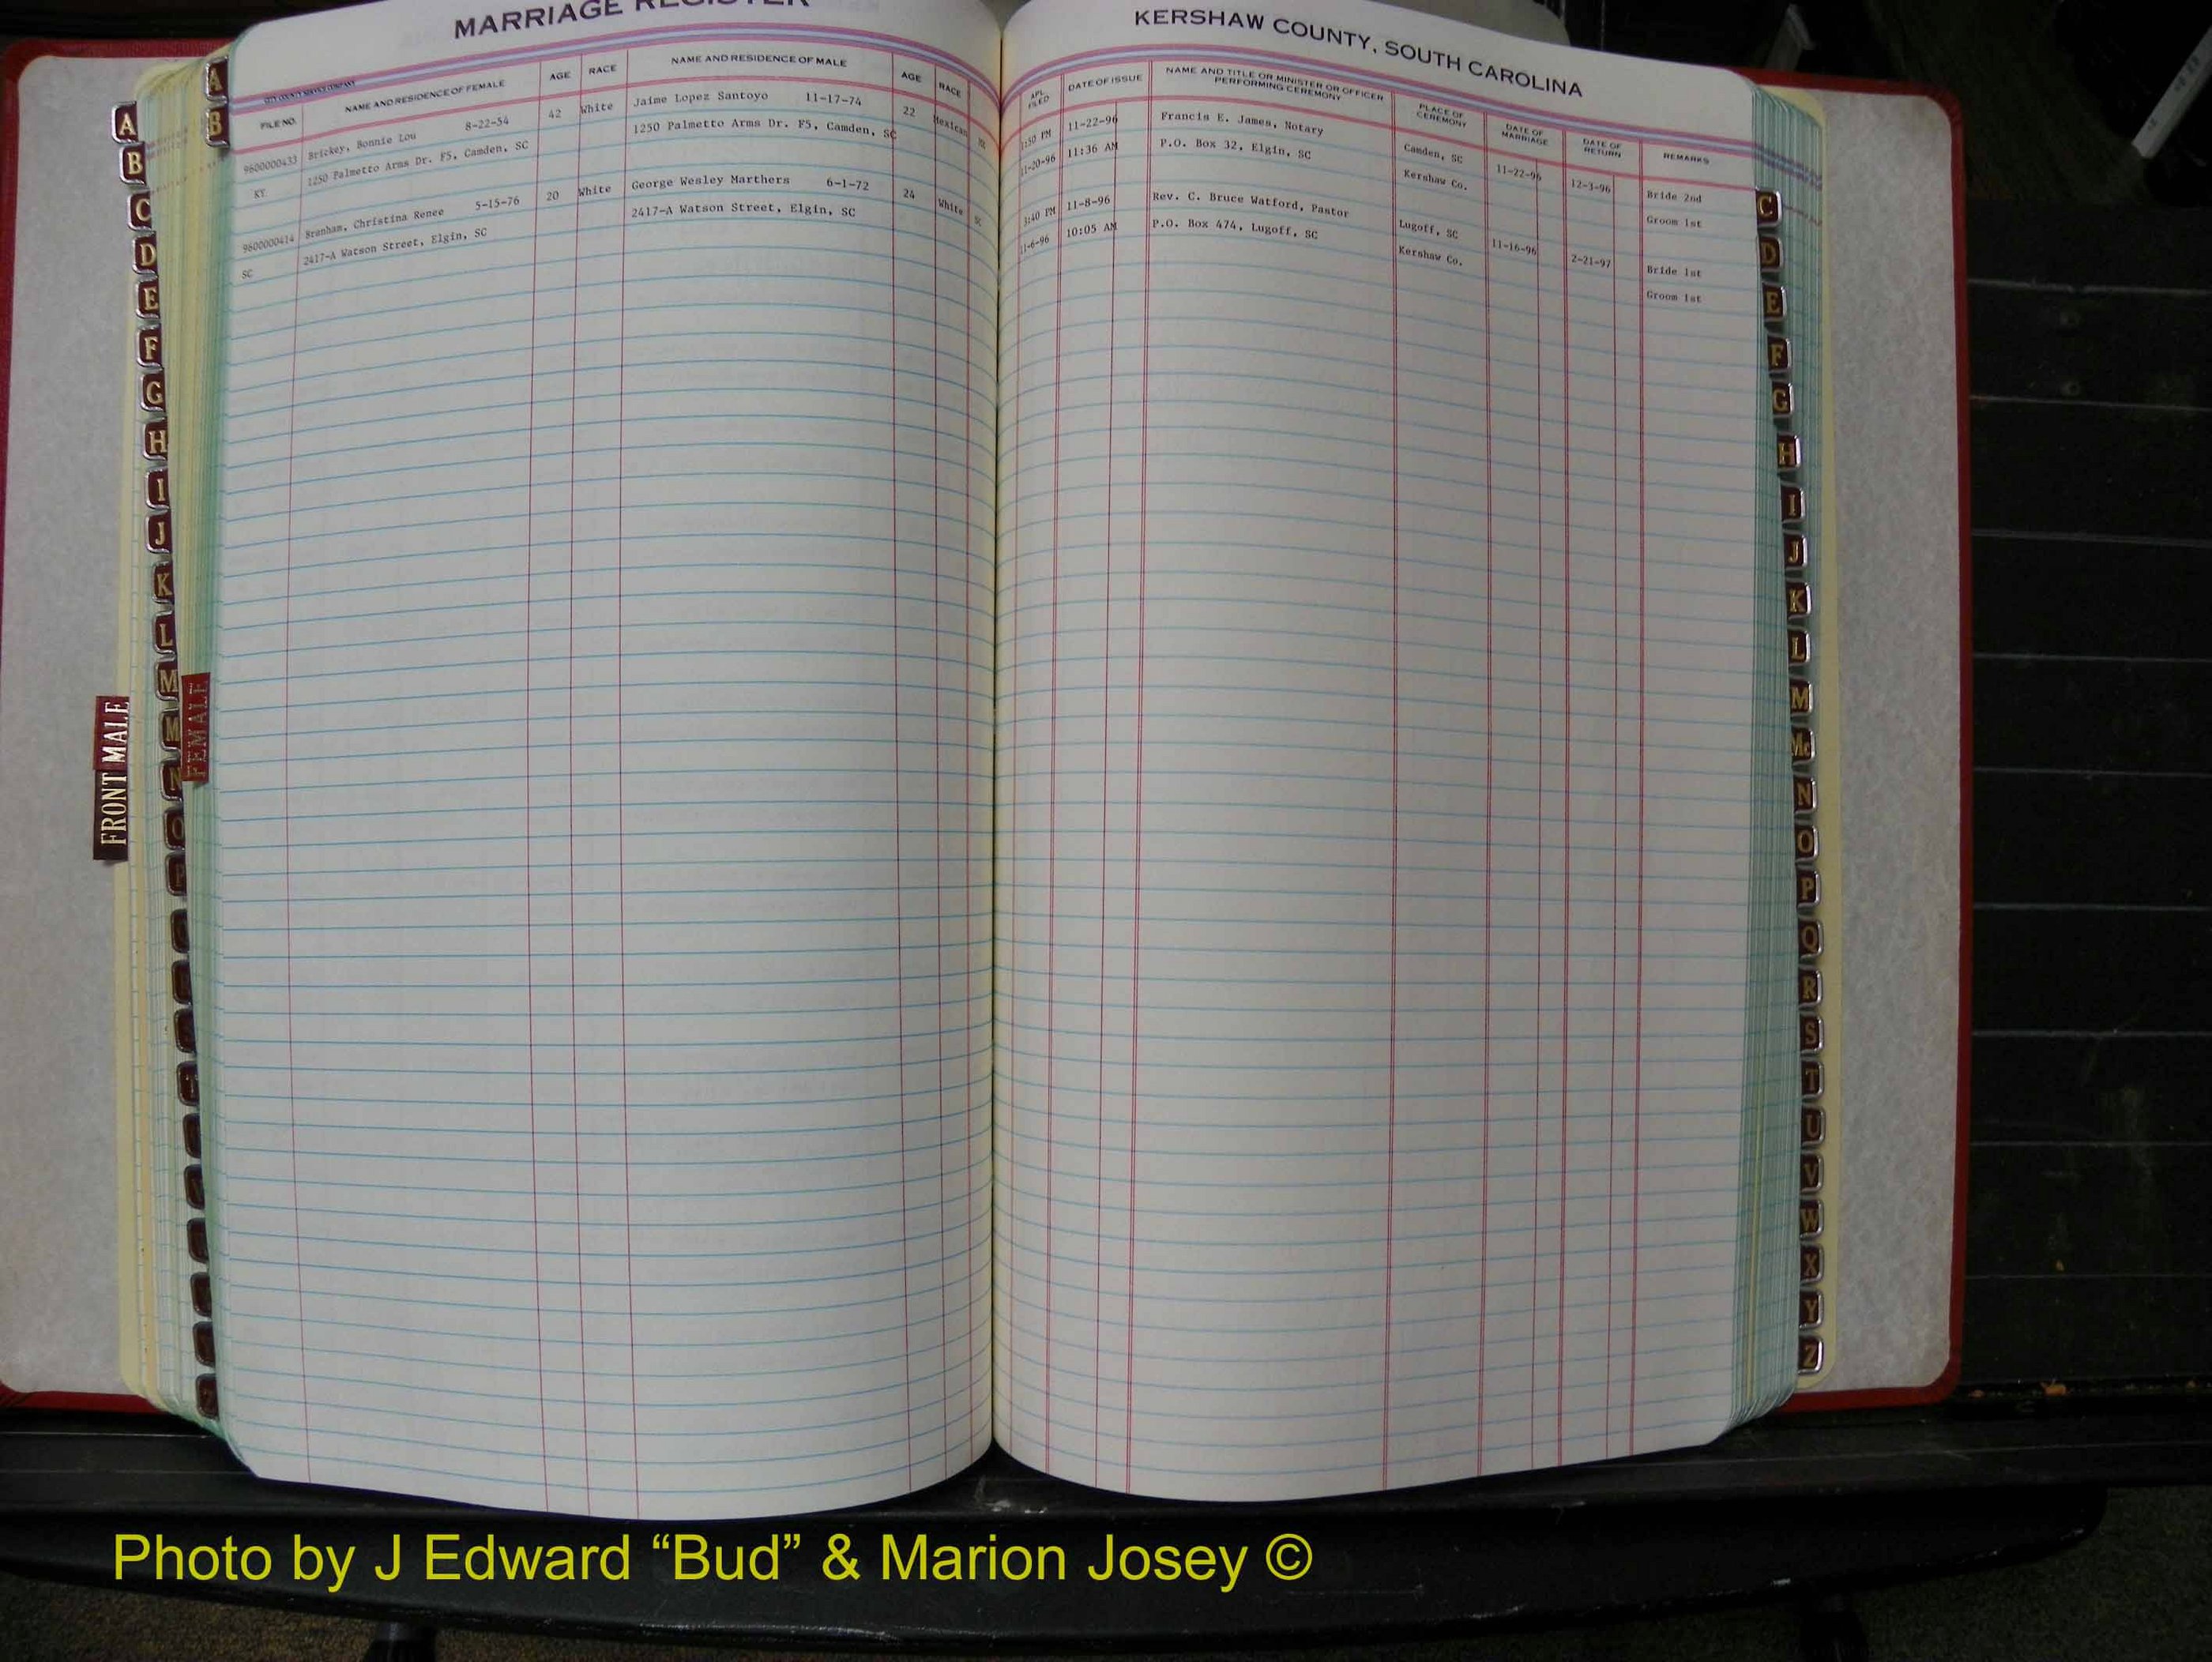 MARRIAGE REGISTER
KERSHAW COUNTY, SOUTH CAROLINA
CITY COUNTY SERVICE COMPANY
FILE NO. NAME AND RESIDENCE OF FEMALE AGE RACE NAME AND RESIDENCE OF MALE AGE RACE APL. FILED DATE OF ISSUE NAME AND TITLE OR MINISTER OR OFFICER PERFORMING CEREMONY PLACE OF CEREMONY DATE OF MARRIAGE DATE OF RETURN REMARKS
9600000433 Brickey, Bonnie Lou 8-22-54 42 White Jaime Lopez Santoyo 11-17-74 22 Mexican 1:50 PM 11-22-96 Francis E. James, Notary Camden, SC 11-22-96 12-3-96 Bride 2nd
KY 1250 Palmetto Arms Dr. F5, Camden, SC 1250 Palmetto Arms Dr. F5, Camden, SC 11-20-96 11:36 AM P.O. Box 32, Elgin, SC Kershaw Co. Groom 1st
9600000414 Branham, Christina Renee 5-15-76 20 White George Wesley Marthers 6-1-72 24 White SC 3:40 PM 11-8-96 Rev. C. Bruce Watford, Pastor Lugoff, SC 11-16-96 2-21-97 Bride 1st
SC 2417-A Watson Street, Elgin, SC 2417-A Watson Street, Elgin, SC 11-6-96 10:05 AM P.O. Box 474, Lugoff, SC Kershaw Co. Groom 1st
A
B
A
B
C
D
E
F
G
H
I
J
K
L
M
M
N
O
P
T
Z
FRONT MALE
FEMALE
C
D
E
F
G
H
I
J
K
L
M
Mc
N
O
P
Q
R
S
T
U
V
W
X
Y
Z
Photo by J Edward “Bud” & Marion Josey ©